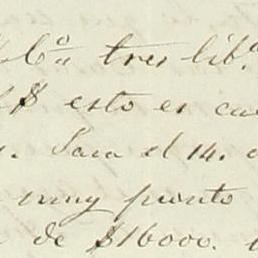 Cª tres lib.
$ esto es cua
. Para el 14. d
muy pronto
de $16000.